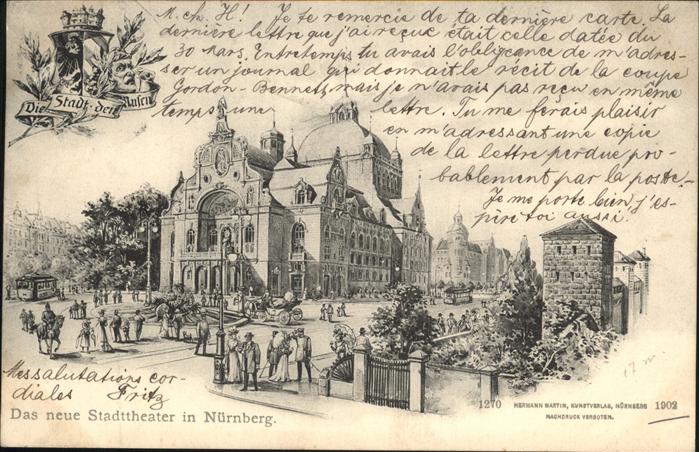 M. ch. H! Je te remercie de ta dernière carte. La
dernière lettre que j'ai reçue était celle datée du
30 Mars. Entretemps tu avais l'obligeance de m'adres-
ser un journal qui donnait le récit de la coupe
Gordon-Bennett, mais je n'avais pas reçu en même
temps une lettre. Tu me ferais plaisir
en m'adressant une copie
de la lettre perdue pro-
bablement par la poste.
Je me porte bien, j'es-
père toi aussi.
Die Stadt den Musen
Mes salutations cor-
diales Fritz
Das neue Stadttheater in Nürnberg.
1270 HERMANN MARTIN, KUNSTVERLAG, NÜRNBERG 1902
NACHDRUCK VERBOTEN.